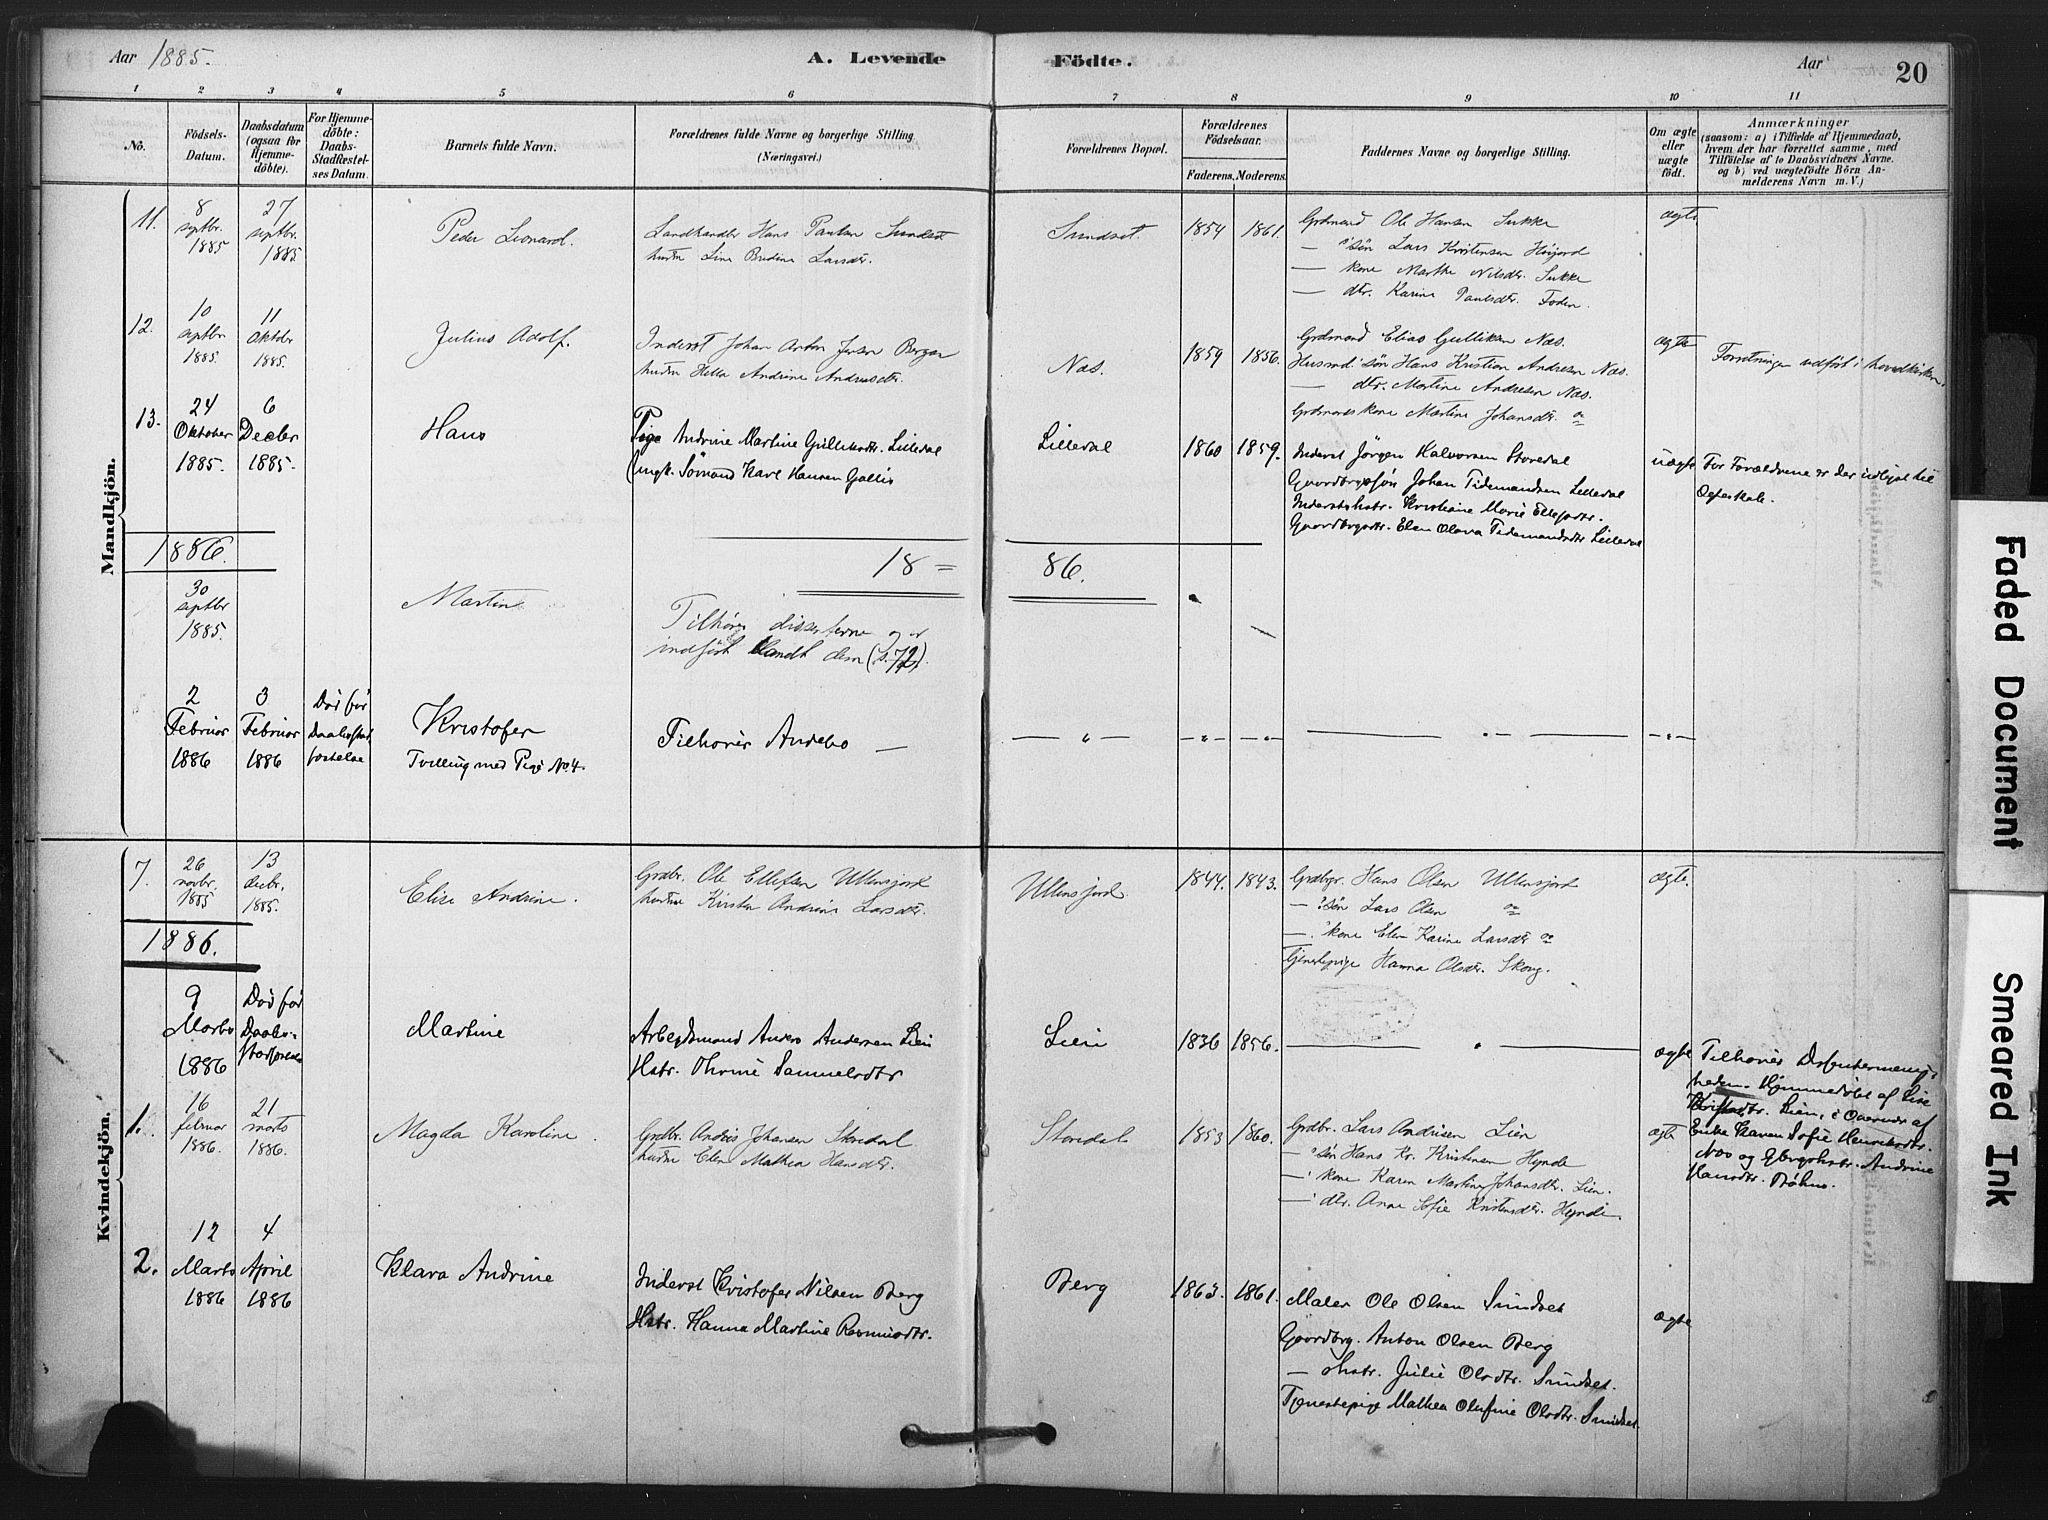 Aar 1885.
A. Levende Födte.
Aar
20
1 2 3 4 5 6 7 8 9 10 11
No.
Födsels-Datum.
Daabsdatum (ogsaa for Hjemmedöbte).
For Hjemmedöbte: Daabs-Stadfæstelses Datum.
Barnets fulde Navn.
Forældrenes fulde Navne og borgerlige Stilling.
(Næringsvei.)
Forældrenes Bopæl.
Forældrenes Födselsaar.
Faderens. Moderens.
Faddernes Navne og borgerlige Stilling.
Om ægte eller uægte födt.
Anmærkninger
(saasom: a) i Tilfælde af Hjemmedaab, hvem der har forrettet samme, med Tilföielse af to Daabsvidners Navne. og b) ved uægtefödte Börn Anmelderens Navn m. V.)
Mandkjön.
11. 8 septbr. 1885 27 septbr. 1885
Peder Leonard.
Landhandler Hans Paulsen Sundset
hustru Line Bredine Larsdtr.
Sundset. 1854 1861.
Grdmand Ole Hansen Sukke
— søn Lars Kristensen Høijord
— kone Marthe Nilsdtr. Sukke
— dtr. Karine Paulsdtr. Foden.
ægte
12. 10 septbr. 1885. 11 oktober 1885.
Julius Adolf.
Inderst Johan Anton Jensen Bergan
hustru Hella Andrine Andreasdtr.
Næs. 1859 1856.
Grdmand Elias Gulliksen Næs.
Husmd. søn Hans Kristian Andresen Næs.
— dtr. Martine Andresen Næs.
Grdmands kone Martine Johansdtr. do
ægte
Forretningen udført i hovedkirken.
13. 24 Oktober 1885. 6 Decbr 1885.
Hans
Pige Andrine Martine Gulliksdtr. Lilledal
Ungk. Sømand Karl Hansen Gallis
Lilledal 1860 1859.
Inderst Jørgen Halvorsen Storedal
Gaardbrgrsøn Johan Tidemandsen Lilledal
Inderstshstr. Kristiane Marie Ellefsdtr.
Gaardbrgrdtr. Elen Olava Tidemandsdtr Lilledal
uægte
For Forældrene er der udlyst til Ægteskab.
1886.
18 = 86.
30 septbr 1885.
Martin
Tilhører dissenterne og er
indført blandt dem (s. 72).
2 Februar 1886 3 Februar 1886
Død før Daabsstadfæstelse
Kristofer
Tvilling med Pige No. 4.
Tilhører Andebo —
Kvindekjön.
7. 26 novbr. 1885 13 decbr. 1885.
Elise Andrine.
Grdbr. Ole Ellefsen Ullensjord
hustru Kirsten Andrine Larsdtr.
Ullensjord 1844. 1843.
Grdbgr. Hans Olsen Ullensjord
— søn Lars Olsen do
— kone Elen Karine Larsdtr do
Tjenestepige Hanna Olsdtr. Skoug.
ægte.
1886.
9 Marts 1886
Død før Daabsstadfæstelse
Martine
Arbeidsmand Anders Andersen Lien
Hstr. Thrine Samuelsdtr
Lien 1836 1856.
ægte
Tilhører Dissentermenigheden. Hjemmedøbt af Lise
Kristofdtr. Lien, i Overvær af
Enke Karen Sofie Henriksdtr.
Næs og Gbrgrhstr. Andrine
Hansdtr. Bøhmo.
1. 16 februar 1886. 21 marts 1886.
Magda Karoline.
Grdbr. Andrés Johansen Storedal
hustru Elen Mathea Hansdtr.
Storedal 1853 1860.
Grdbr. Lars Andersen Lien
— søn Hans Kr. Kristensen Hynde
— kone Karen Martine Johansdtr. Lien.
— dtr. Anne Sofie Kristensdtr. Hynde.
ægte
2. 12 Marts 1886 4 April 1886
Klara Andrine
Inderst Kristofer Nilsen Berg
Hstr. Hanna Martine Rasmusdtr.
Berg 1863. 1861.
Maler Ole Olsen Sundset
Gaardbrg. Anton Olsen Berg
— Hstr. Julie Olsdtr. Sundset.
Tjenestepige Mathea Olufine Olsdtr. Sundset
ægte
Faded Document
Smeared Ink